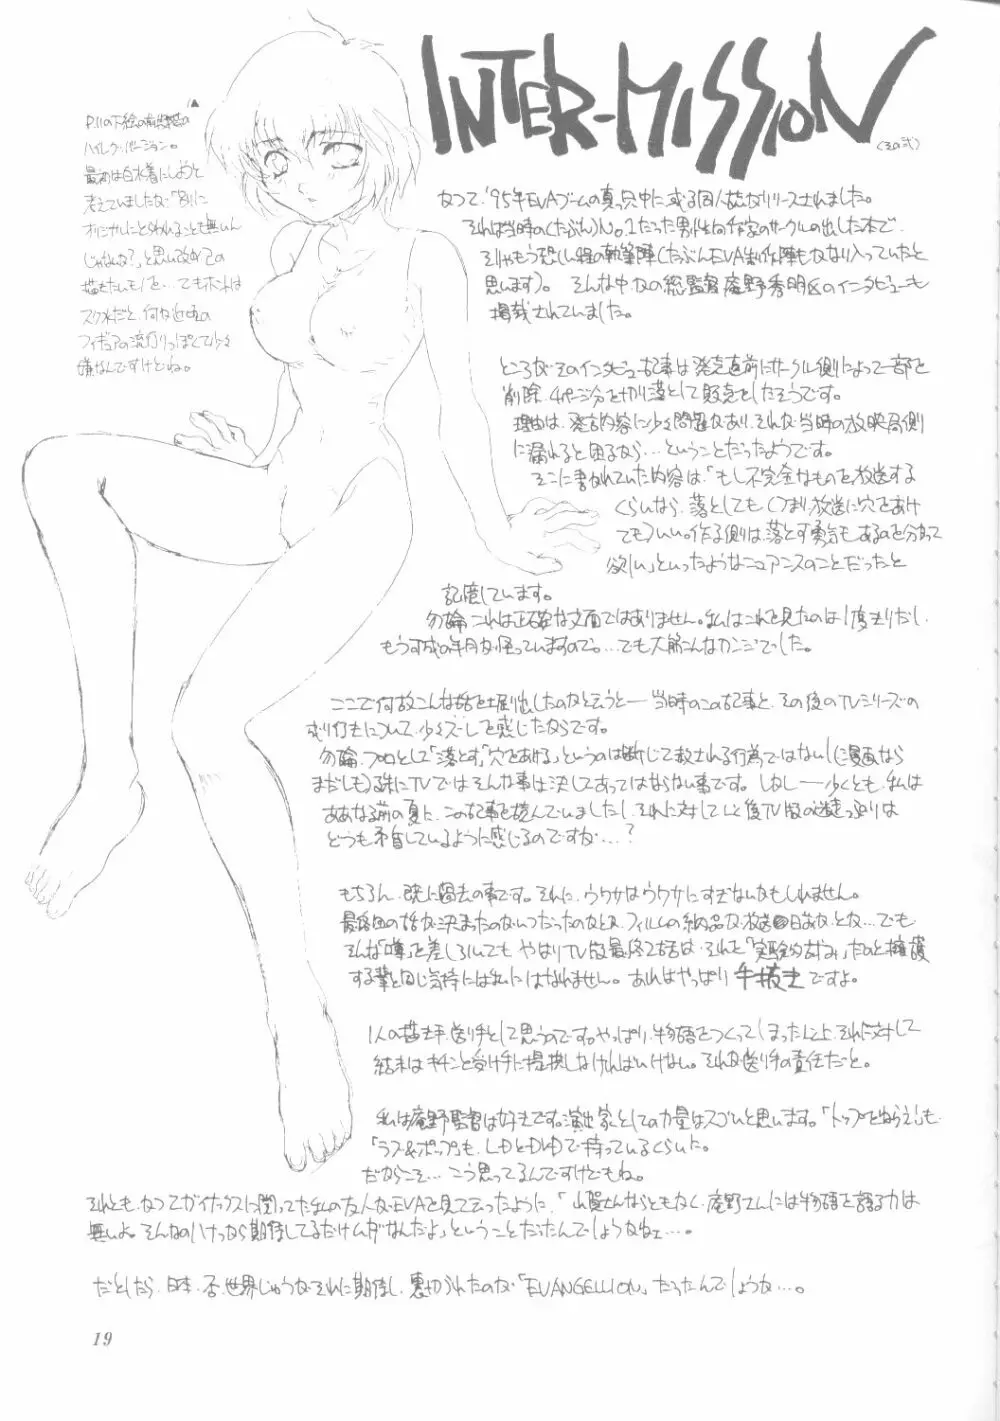 INTER-MISSION
(その弐)
P.11の下絵の
ハイレグ・バージョン。
最初は白水着にしようと
考えていましたが「別に
オリジナルにとらわれることも無いん
じゃないか?」と思い改め この
描きたいモノを…でもホントは
スク水だと、何か近頃の
フィギュアの流行りっぽくて少々
嫌なんですけどね。
かつて、'95年EVAブームの真只中に或る同人誌がリリースされました。
それは当時の(たぶん)No.1だった男性向作家のサークルの出した本で
そりゃもう恐しい程の執筆陣(たぶんEVA制作陣もかなり入っていたと
思います)。そんな中、かの総監督庵野秀明氏のインタビューも
掲載されていました。
ところがそのインタビュー記事は発売直前にサークル側によって一部を
削除、4ページ分を切り落として販売をしたそうです。
理由は、発言内容に少々問題があり、それが当時の放映局側
に漏れると困るから…ということだったようです。
そこに書かれていた内容は、「もし不完全なものを放送する
くらいなら、落としても(つまり放送に穴をあけ
ても)いい。作る側は落とす勇気もあるのを分かって
欲しい」といったようなニュアンスのことだったと
記憶しています。
勿論これは正確な文面ではありません。私はこれを見たのは1度きりだし、
もう可成の年月が経っていますので。…でも大筋こんなカンジでした。
ここで何故こんな話を掘り出したのかと云うと――当時のこの記事と、その後のTVシリーズの
成り行きについて、少々ズレを感じたからです。
勿論、プロとして「落とす」「穴をあける」というのは断じて許される行為ではない!(漫画なら
まだしも)殊にTVではそんな事は決してあってはならない事です。しかし――少くとも、私は
ああなる前の夏に、この記事を読んでいましたし、それに対して後TV版の迷走っぷりは
どうも矛盾しているように感じるのですが…?
もちろん、既に過去の事です。それに、ウワサはウワサにすぎないかもしれません。
最終回の話が決まったのがいつだったのかとか、フィルムの納品が放送日前とか、とか…でも
そんな「噂」を差し引いても、やはりTV版最終2話は、それを「実験的なすみ」だのと擁護
する輩と同じ気持には私にはなれません。あれはやっぱり手抜きですよ。
1人の描き手・送り手として思うのです。やっぱり、物語をつくってしまった以上、それに対して
結末はキチンと受け手に提供しなければいけない。それが送り手の責任だと。
私は庵野監督は好きです。演出家としての力量はスゴいと思います。「トップをねらえ!」も、
「ラブ&ポップ」も、LDとDVDで持っているくらいだ。
だからこそ…こう思ってるんですけどもね。
それとも、かつてガイナックスに関ってた私の友人がEVAを見て云ったように、「山賀さんならともかく、庵野さんには物語を語る力は
無いよ。そんなのハナっから期待してるだけムダなんだよ」ということだったんでしょうかねェ…。
だとしたら、日本、否、世界じゅうがそれに期待し、裏切られたのが「EVANGELION」だったんでしょうか…。
19